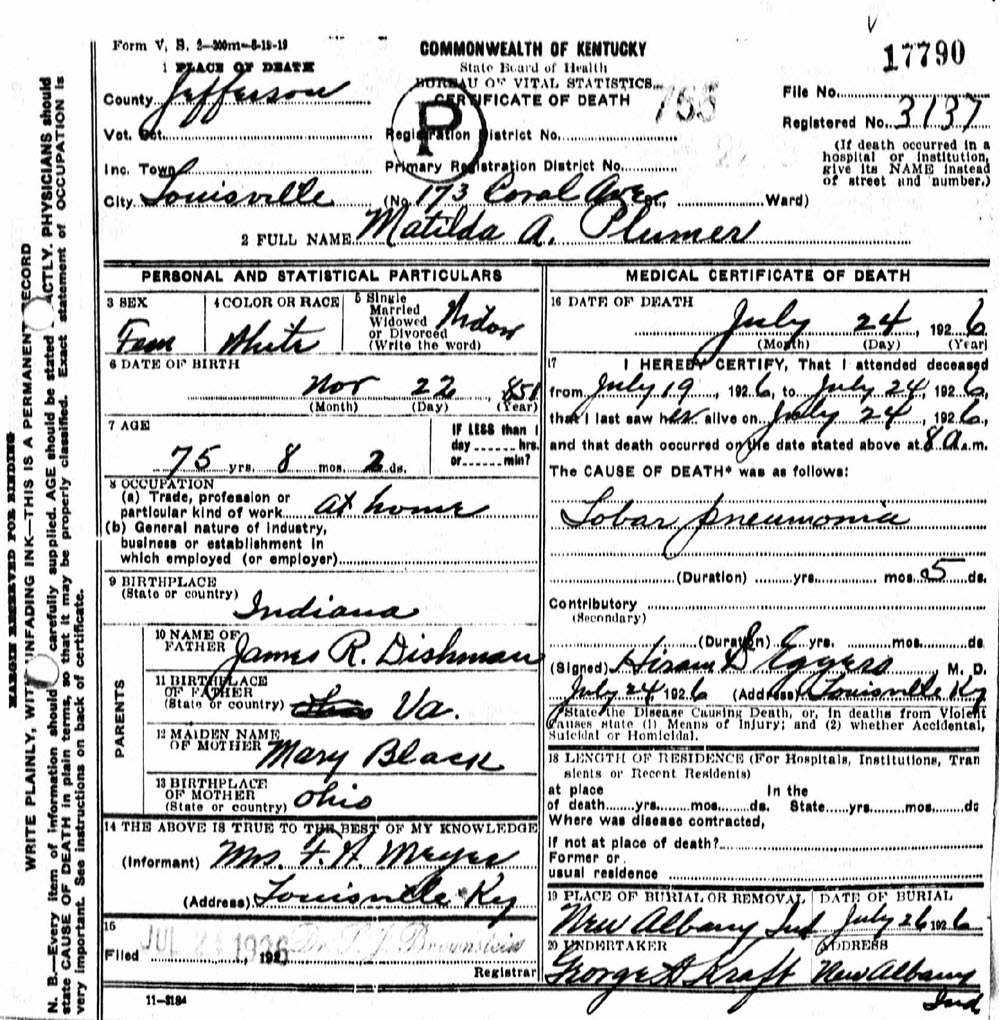 Form V. S. 2—300m—8-19-19
COMMONWEALTH OF KENTUCKY
State Board of Health
BUREAU OF VITAL STATISTICS
CERTIFICATE OF DEATH
17790
1 PLACE OF DEATH
County Jefferson
Vot. Pct.
Inc. Town
City Louisville
P
755
Registration District No.
Primary Registration District No.
(No. 173 Coral Ave St., Ward)
File No.
Registered No. 3137
(If death occurred in a
hospital or institution,
give its NAME instead
of street and number.)
2 FULL NAME Matilda A. Plumer
PERSONAL AND STATISTICAL PARTICULARS
3 SEX
Fem
4 COLOR OR RACE
White
5 Single
Married
Widowed
or Divorced
(Write the word)
Widow
6 DATE OF BIRTH
Nov 22, 1851
(Month) (Day) (Year)
7 AGE
75 yrs. 8 mos. 2 ds.
IF LESS than 1
day ...... hrs.
or ...... min?
8 OCCUPATION
(a) Trade, profession or
particular kind of work at home
(b) General nature of industry,
business or establishment in
which employed (or employer)
9 BIRTHPLACE
(State or country)
Indiana
PARENTS
10 NAME OF
FATHER James R. Dishman
11 BIRTHPLACE
OF FATHER
(State or country) Va.
12 MAIDEN NAME
OF MOTHER Mary Black
13 BIRTHPLACE
OF MOTHER
(State or country) Ohio
14 THE ABOVE IS TRUE TO THE BEST OF MY KNOWLEDGE
(Informant) Mrs. F. A Meyer
(Address) Louisville Ky
15
Filed JUL 24 1926, 192 Dr. P. J. Brownstein
Registrar
11—3184
MEDICAL CERTIFICATE OF DEATH
16 DATE OF DEATH
July 24, 1926
(Month) (Day) (Year)
17 I HEREBY CERTIFY, That I attended deceased
from July 19, 1926, to July 24, 1926,
that I last saw her alive on July 24, 1926,
and that death occurred on the date stated above at 8 a.m.
The CAUSE OF DEATH* was as follows:
Lobar pneumonia
(Duration) yrs. mos. 5 ds.
Contributory
(Secondary)
(Duration) yrs. mos. ds
(Signed) Hiram S Eggers M. D.
July 24 1926 (Address) Louisville Ky
State the Disease Causing Death, or, in deaths from Violent
Causes state (1) Means of Injury; and (2) whether Accidental,
Suicidal or Homicidal.
18 LENGTH OF RESIDENCE (For Hospitals, Institutions, Tran
sients or Recent Residents)
at place In the
of death yrs. mos. ds. State yrs. mos. ds
Where was disease contracted,
if not at place of death?
Former or
usual residence
19 PLACE OF BURIAL OR REMOVAL
New Albany Ind
DATE OF BURIAL
July 26 1926
20 UNDERTAKER
George A Kraft
ADDRESS
New Albany
Ind
MARGIN RESERVED FOR BINDING
WRITE PLAINLY, WITH UNFADING INK—THIS IS A PERMANENT RECORD
N. B.—Every item of information should carefully supplied. AGE should be stated ACTLY. PHYSICIANS should
state CAUSE OF DEATH in plain terms, so that it may be properly classified. Exact statement of OCCUPATION is
very important. See instructions on back of certificate.